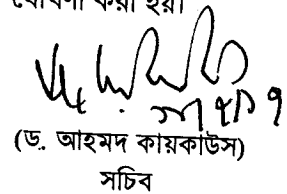 ঘোষণা করা হয়।
(ড. আহমদ কায়কাউস)
সচিব